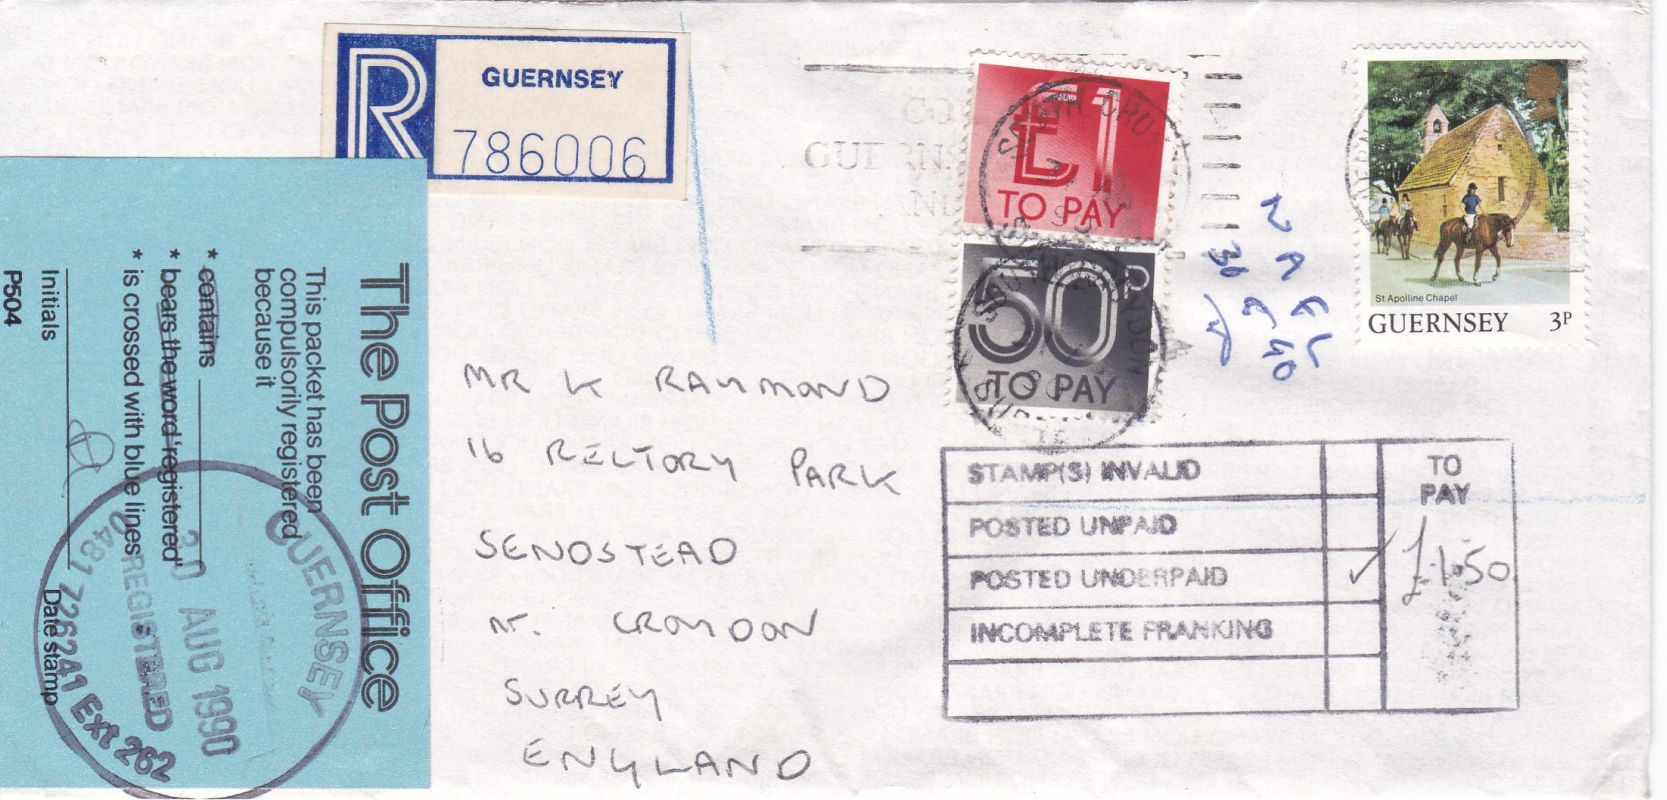 GUERNSEY
R
786006
£1
TO PAY
50P
TO PAY
St Apolline Chapel
GUERNSEY 3P
The Post Office
This packet has been
compulsorily registered
because it
* contains
* bears the word 'registered'
* is crossed with blue lines
Initials
Date stamp
P504
GUERNSEY
30 AUG 1990
REGISTERED
0481 726241 Ext 262
MR K RAYMOND
16 RECTORY PARK
SENDSTEAD
NR. CROYDON
SURREY
ENGLAND
STAMP(S) INVALID
POSTED UNPAID
POSTED UNDERPAID ✓
INCOMPLETE FRANKING
TO
PAY
£1.50